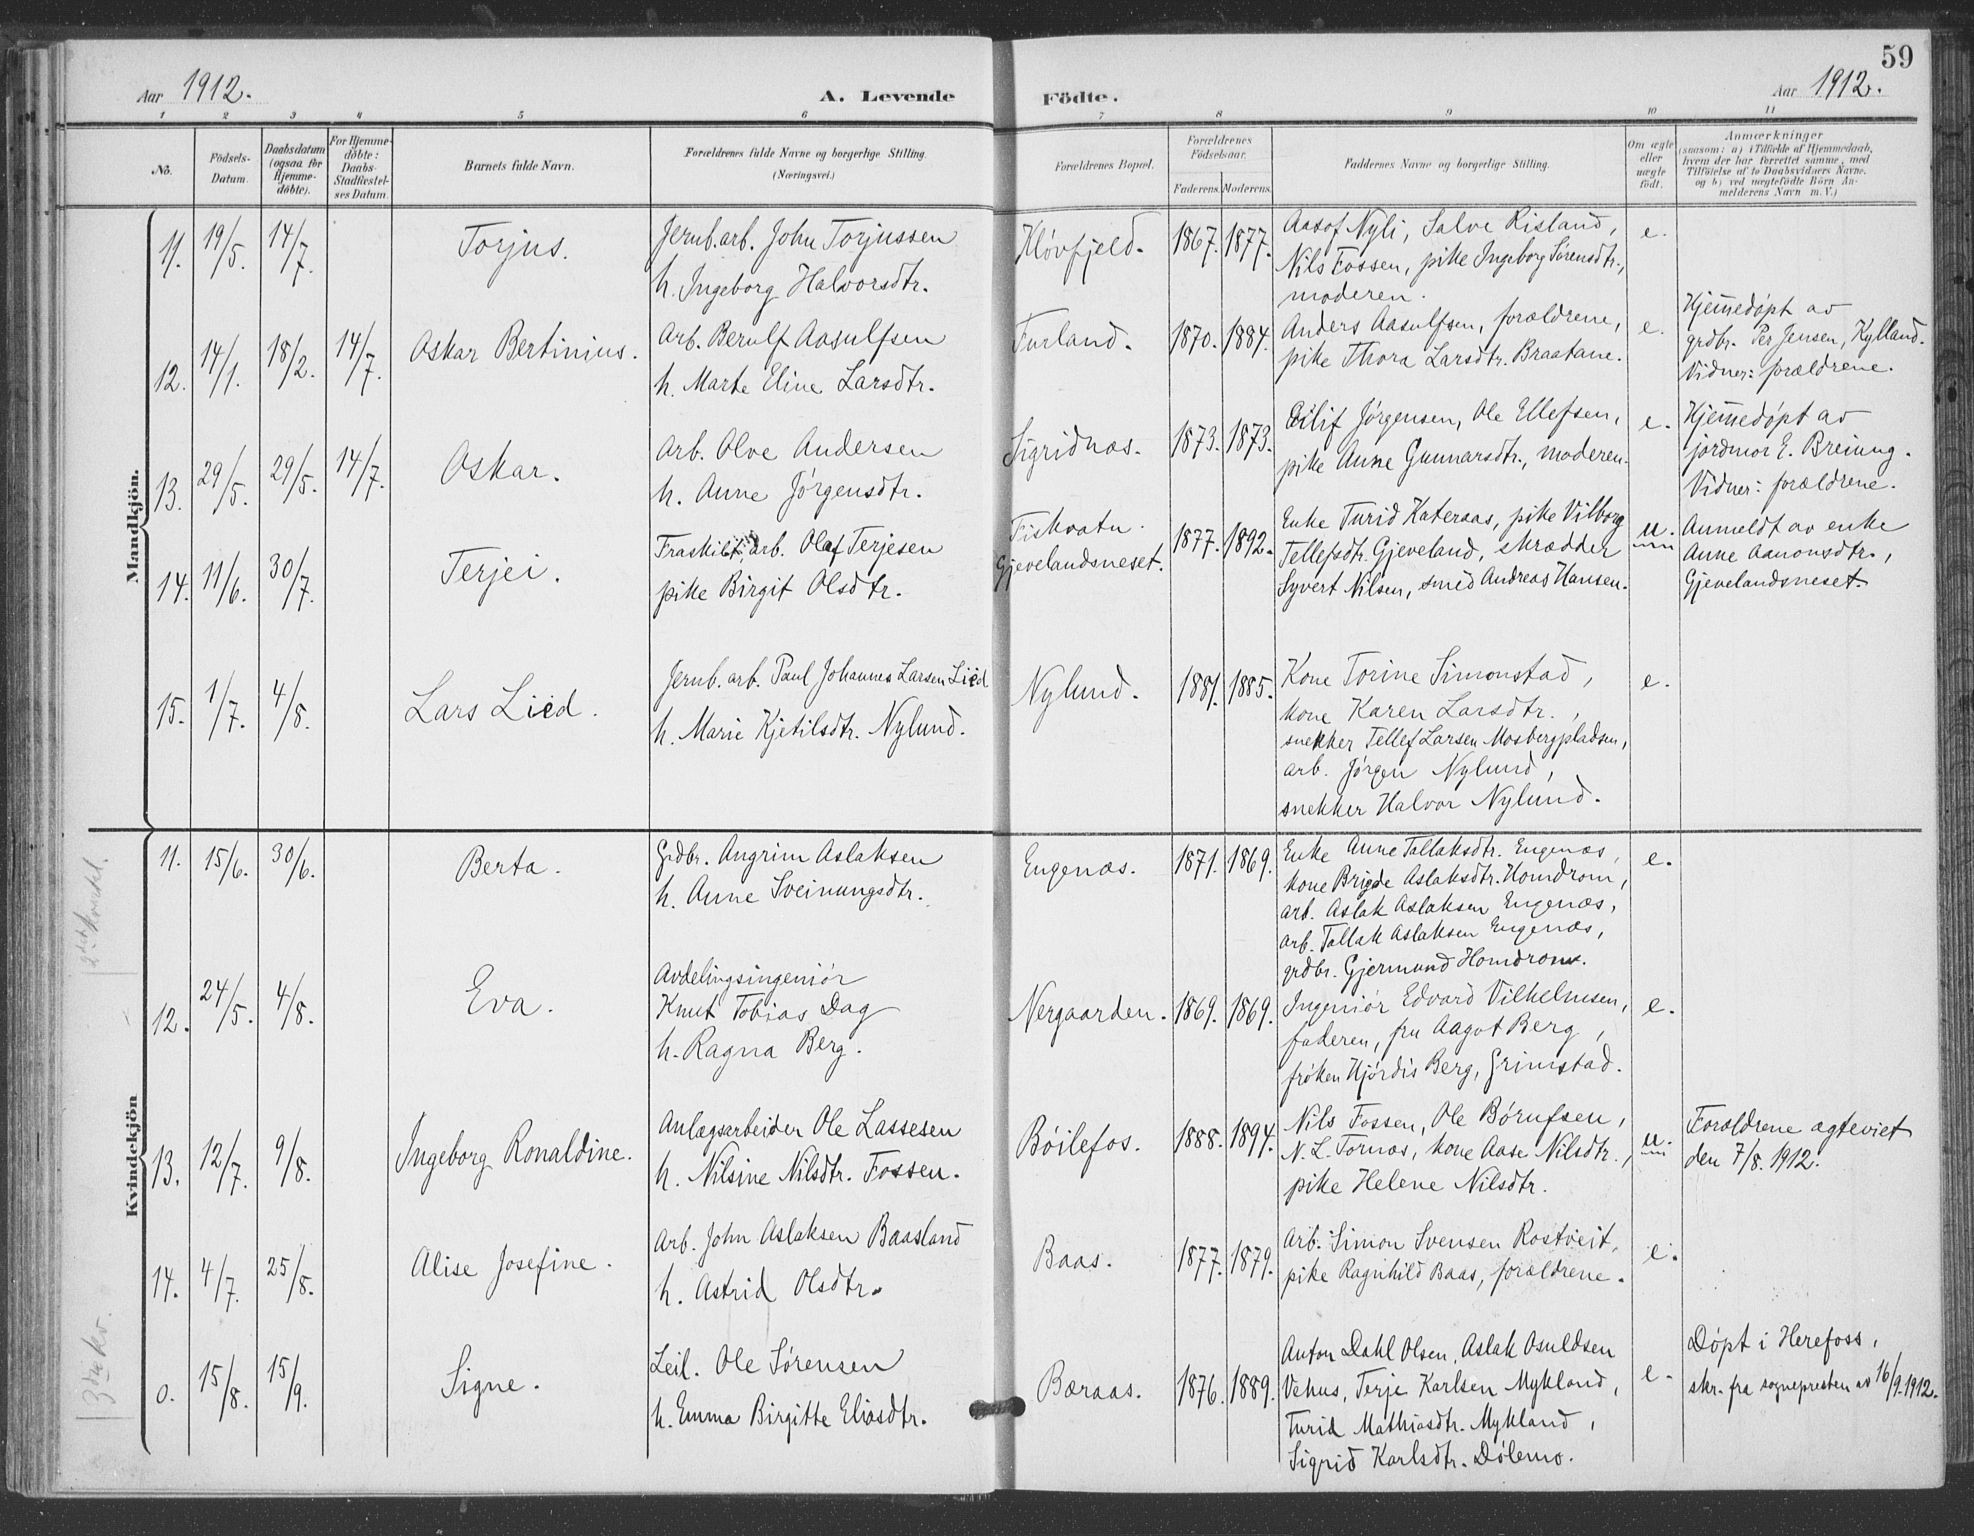 59
Aar 1912.
A. Levende
Födte.
Aar 1912.
1 2 3 4 5 6 7 8 9 10 11
No.
Födsels-
Datum.
Daabsdatum
(ogsaa for
Hjemme-
døbte).
For Hjemme-
døbte:
Daabs-
Stadfæstel-
ses Datum.
Barnets fulde Navn.
Forældrenes fulde Navne og borgerlige Stilling.
(Næringsvei.)
Forældrenes Bopæl.
Forældrenes
Födselsaar.
Faderens.
Moderens.
Faddernes Navne og borgerlige Stilling.
Om ægte
eller
uægte
født.
Anmærkninger
(saasom: a) i Tilfælde af Hjemmedaab,
hvem der har forrettet samme, med
Tilføielse af to Daabsvidners Navne.
og b) ved uægtefödte Börn An-
melderens Navn m. V.)
Mandkjön.
11. 19/5. 14/7.
Torjus.
Jernb.arb. John Torjussen
h. Ingeborg Halvorsdtr.
Kløvfjeld. 1867. 1877.
Aasof Nyli, Salve Risland,
Nils Fossen, pike Ingeborg Sørensdtr.,
moderen.
e.
12. 14/1. 18/2. 14/7.
Oskar Bertinius.
Arb. Berulf Aasulfsen
h. Marte Eline Larsdtr.
Furland. 1870. 1884.
Anders Aasulfsen, forældrene,
pike Thora Larsdtr. Braatane.
e.
Hjemmedøpt av
grdbr. Per Jensen, Kylland.
Vidner: forældrene.
13. 29/5. 29/5. 14/7.
Oskar.
Arb. Olve Andersen
h. Anne Jørgensdtr.
Sigridnæs. 1873. 1873.
Eilif Jørgensen, Ole Ellefsen,
pike Anne Gunnarsdtr., moderen.
e.
Hjemmedøpt av
jordmor E. Breiung.
Vidner: forældrene.
14. 11/6. 30/7.
Terjei.
Fraskilt, arb. Olaf Terjesen
pike Birgit Olsdtr.
Fiskvatn.
Gjevelandsneset.
1877. 1892.
Enke Turid Kateraas, pike Vilborg
Tellefsdtr. Gjeveland, skrædder
Syvert Nilsen, smed Andreas Hansen.
u.
Anmeldt av enke
Anne Aanonsdtr.,
Gjevelandsneset.
15. 1/7. 4/8.
Lars Lied.
Jernb. arb. Paul Johannes Larsen Lied
h. Marie Kjetilsdtr. Nylund.
Nylund. 1881. 1885.
Kone Torine Simonstad,
kone Karen Larsdtr.,
snekker Tellef Larsen Mosbergpladsen,
arb. Jørgen Nylund,
snekker Halvor Nylund.
e.
Kvindekjön
11. 15/6. 30/6.
Berta.
Grdbr. Angrim Aslaksen
h. Anne Sveinungsdtr.
Engenæs. 1871. 1869.
Enke Anne Tallaksdtr. Engenæs,
kone Brigde Aslaksdtr. Homdrom,
arb. Aslak Aslaksen Engenæs,
arb. Tallak Aslaksen Engenæs,
grdbr. Gjermund Homdrom.
e.
12. 24/5. 4/8.
Eva.
Avdelingsingeniør
Knut Tobias Dag
h. Ragna Berg.
Nergaarden. 1869. 1869.
Ingeniør Edvard Vilhelmsen,
faderen, fru Aagot Berg,
frøken Hjørdis Berg, Grimstad.
e.
13. 12/7. 9/8.
Ingeborg Ronaldine.
Anlægsarbeider Ole Lassesen
h. Nilsine Nilsdtr. Fossen.
Bøilefos. 1888. 1894.
Nils Fossen, Ole Børufsen,
N. L. Tornæs, kone Aase Nilsdtr.,
pike Helene Nilsdtr.
u.
Forældrene ægteviet
den 7/8. 1912.
14. 4/7. 25/8.
Alise Josefine.
Arb. John Aslaksen Baasland
h. Astrid Olsdtr.
Baas. 1877. 1879.
Arb. Simon Svensen Rostveit,
pike Ragnhild Baas, forældrene.
e.
0. 15/8. 15/9.
Signe.
Leil. Ole Sørensen
h. Emma Birgitte Eliasdtr.
Bæraas. 1876. 1889.
Anton Dahl Olsen, Aslak Osuldsen
Vehus, Terje Karlsen Mykland,
Turid Mathiasdtr. Mykland,
Sigrid Karlsdtr. Dølemo.
e.
Døpt i Herefoss,
skr. fra sognepresten av 16/9. 1912.